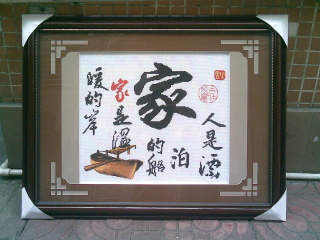 家
人是漂
泊
的船
家是温
暖的岸